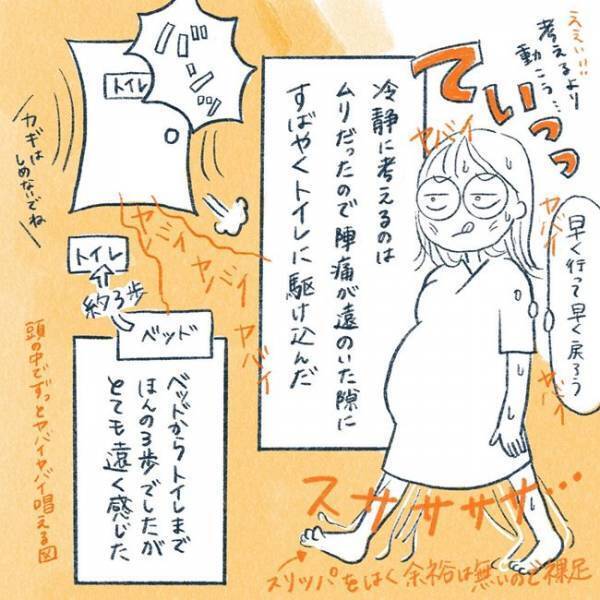 ええぃ!!!
考えるより
動こう…
てぃっっ
ヤバイ
早く行って早く戻ろう
ヤバイ
ヤバイ
冷静に考えるのは
ムリだったので陣痛が遠のいた隙に
すばやくトイレに駆け込んだ
スササササ…
スリッパをはく余裕は無いので裸足
バンッ
トイレ
カギは
しめないでね
ヤバイ
ヤバイ
ヤバイ
トイレ
約3歩
ベッド
ベッドからトイレまで
ほんの3歩でしたが
とても遠く感じた
頭の中でずっとヤバイヤバイ唱える図